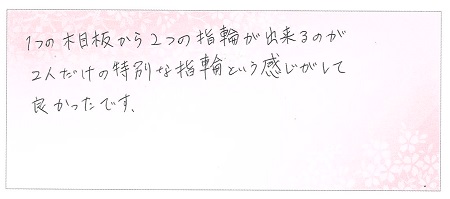 1つの木目板から2つの指輪が出来るのが
2人だけの特別な指輪という感じがして
良かったです.